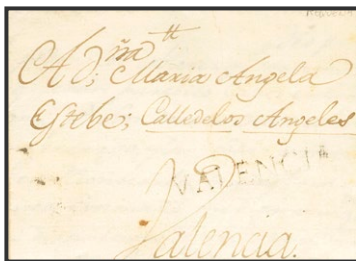 A D;ña Maria Angela
Estebe; Calle de los Angeles
VALENCIA
Valencia.